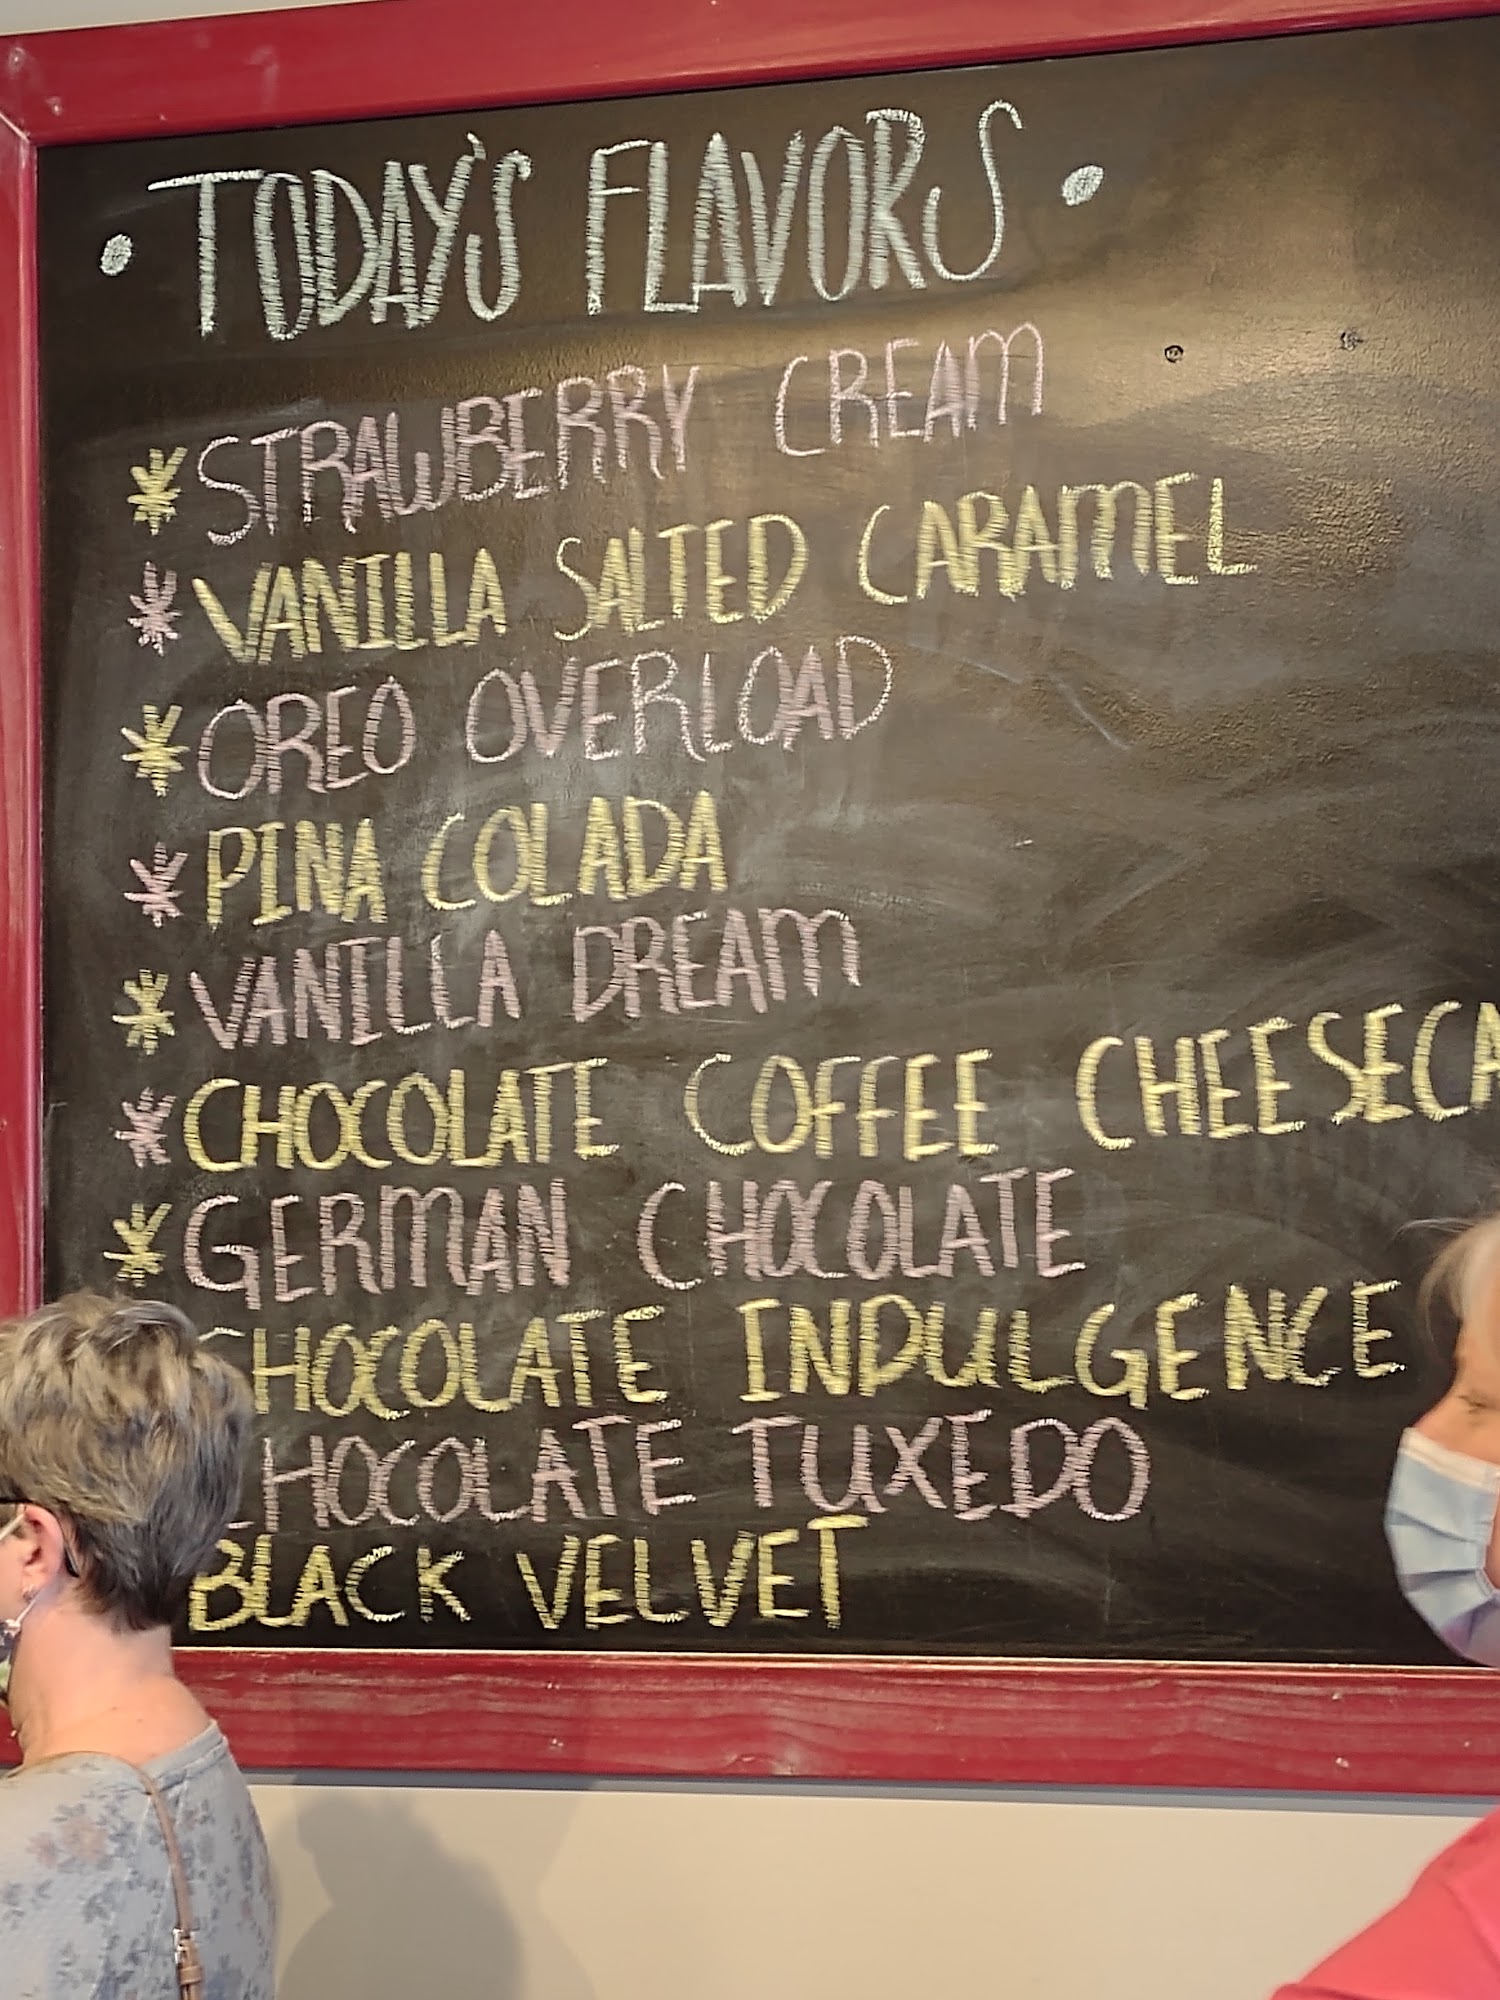 • TODAY'S FLAVORS •
* STRAWBERRY CREAM
* VANILLA SALTED CARAMEL
* OREO OVERLOAD
* PINA COLADA
* VANILLA DREAM
* CHOCOLATE COFFEE CHEESECA
* GERMAN CHOCOLATE
CHOCOLATE INDULGENCE
CHOCOLATE TUXEDO
BLACK VELVET